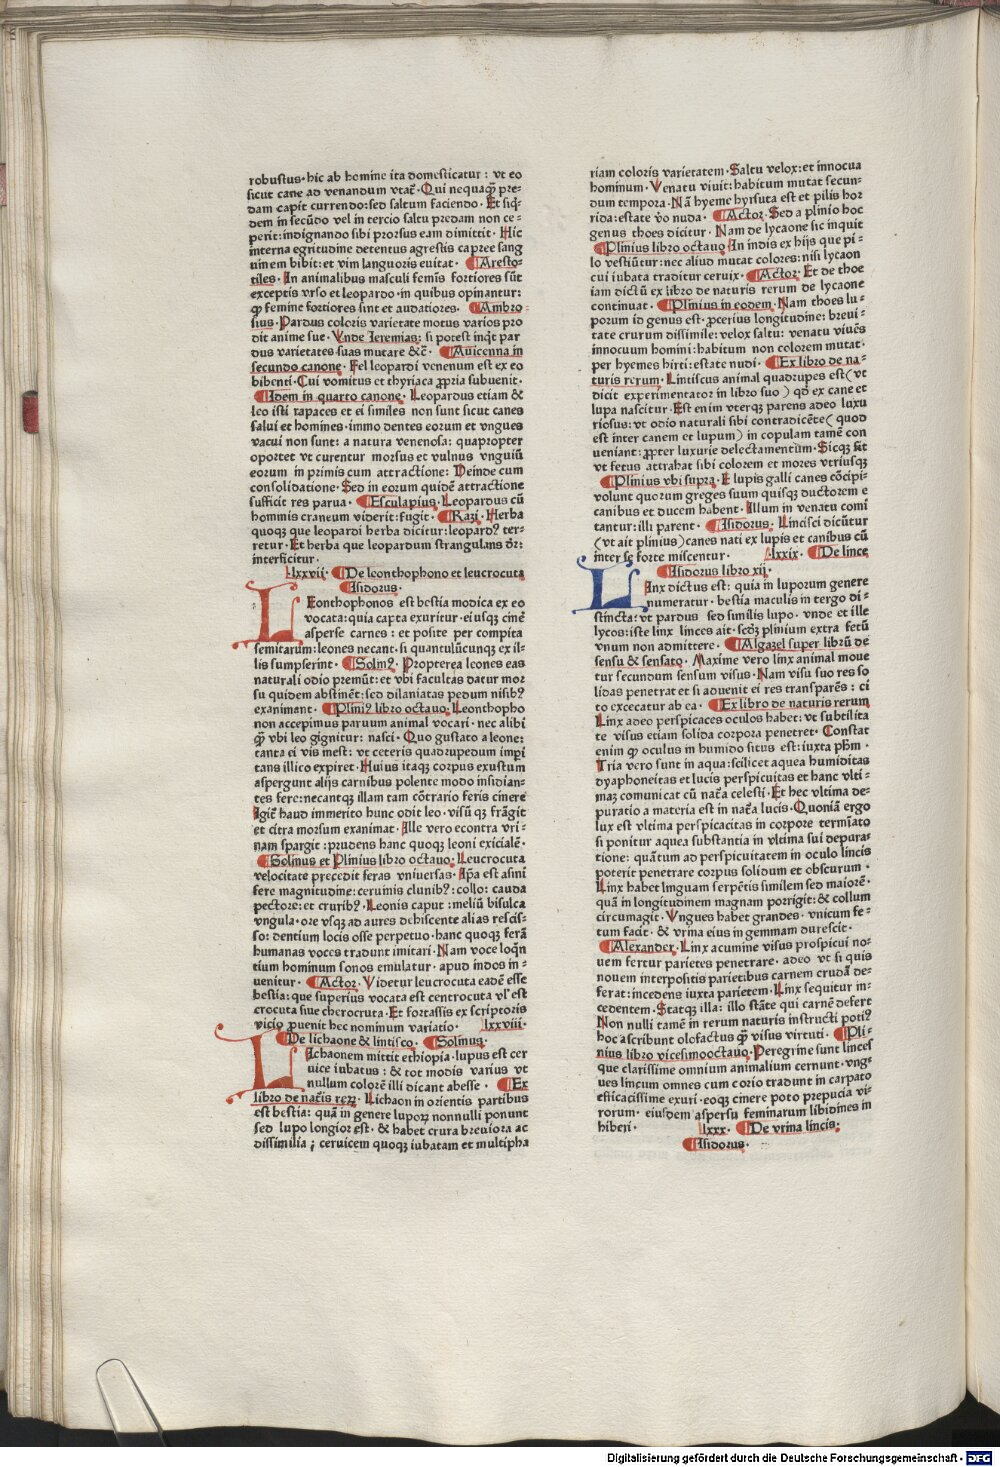 robustus· hic ab homine ita domesticatur : vt eo
sicut cane ad venandum vtat᷑· Qui nequaq̃ pre-
dam capit currendo: sed saltum faciendo· Et siq̃-
dem in secũdo vel in tercio saltu predam non ce-
perit: indignando sibi prorsus eam dimittit· Hic
interna egritudine detentus agrestis capree sang
uinem bibit: et vim languoris euitat· ¶Aresto-
tiles· In animalibus masculi feminis fortiores sũt
exceptis vrso et leopardo· in quibus opinantur:
ꝙ femine fortiores sint et audatiores· ¶Ambro-
sius· Pardus coloris varietate motus varios pro
dit anime sue· Vnde Ieremias: si potest inq̃t par
dus varietates suas mutare &c̃· ¶Auicenna in
secundo canone· Fel leopardi venenum est ex eo
bibenti· Cui vomitus et thyriaca ꝓpria subuenit·
¶Idem in quarto canone· Leopardus etiam &
leo isti rapaces et ei similes non sunt sicut canes
salui et homines· immo dentes eorum et vngues
vacui non sunt: a natura venenosa: quapropter
oportet vt curentur morsus et vulnus vnguiũ
eorum in primis cum attractione: Deinde cum
consolidatione· Sed in eorum quidẽ attractione
sufficit res parua· ¶Esculapius· Leopardus cũ
hominis craneum viderit: fugit· ¶Razi· Herba
quoqꝫ que leopardi herba dicitur: leopardꝰ ter-
retur· Et herba que leopardum strangulans dr̃:
interficitur·
lxxvij· ¶De leonthophono et leucrocuta
¶Isidorus·
LEonthophonos est bestia modica ex eo
vocata: quia capta exuritur· eiusqꝫ cinẽ
asperse carnes : et posite per compita
semitarum: leones necant· si quantulũcunqꝫ ex il-
lis sumpserint· ¶Solinꝰ· Propterea leones eas
naturali odio premũt: et vbi facultas datur mor
su quidem abstinẽt: sed dilaniatas pedum nisibꝰ
exanimant· ¶Pliniꝰ libro octauo· Leonthopho
non accepimus paruum animal vocari· nec alibi
q̃ vbi leo gignitur: nasci· Quo gustato a leone:
tanta ei vis inest: vt ceteris quadrupedum impi
tans illico expiret· Huius itaqꝫ corpus exustum
aspergunt alijs carnibus polente modo insidian-
tes fere: necantqꝫ illam tam cõtrario feris cinere
Igit᷑ haud immerito hunc odit leo· visũ qꝫ frãgit
et citra morsum exanimat· Ille vero econtra vri-
nam spargit : prudens hanc quoqꝫ leoni exicialẽ·
¶Solinus et Plinius libro octauo: Leucrocuta
velocitate precedit feras vniuersas· Ip̃a est asini
fere magnitudine: ceruinis clunibꝰ: collo: cauda
pectore: et cruribꝰ· Leonis caput : meliũ bisulca
vngula· ore vsqꝫ ad aures dehiscente alias rescis-
so: dentium locis osse perpetuo· hanc quoqꝫ ferã
humanas voces tradunt imitari· Nam voce loq̃n
tium hominum sonos emulatur· apud indos in-
uenitur· ¶Actor· Videtur leucrocuta eadẽ esse
bestia: que superius vocata est centrocuta vl᷑ est
crocuta siue cherocruta· Et fortassis ex scriptoris
vicio ꝓuenit hec nominum variatio· lxxviii·
¶De lichaone & lintisco· ¶Solinus·
LIchaonem mittit ethiopia· lupus est cer
uice iubatus : & tot modis varius vt
nullum colorẽ illi dicant abesse· ¶Ex
libro de nat̃is reꝝ· Lichaon in orientis partibus
est bestia: quã in genere lupoꝝ nonnulli ponunt
sed lupo longior est· & habet crura breuiora ac
dissimilia ; ceruicem quoqꝫ iubatam et multipha
riam coloris varietatem· Saltu velox: et innocua
hominum· Venatu viuit: habitum mutat secun-
dum tempora· Nã hyeme hyrsuta est et pilis hor
rida: estate ṽo nuda· ¶Actor· Sed a plinio hoc
genus thoes dicitur· Nam de lycaone sic inquit
¶Plinius libro octauo· In indis ex hijs que pi-
lo vestiũtur: nec aliud mutat colores: nisi lycaon
cui iubata traditur ceruix· ¶Actor· Et de thoe
iam dictũ ex libro de naturis rerum de lycaone
continuat· ¶Plinius in eodem· Nam thoes lu-
porum id genus est· ꝓcerius longitudine: breui-
tate crurum dissimile: velox saltu: venatu viuẽs
innocuum homini: habitum non colorem mutat·
per hyemes hirti: estate nudi· ¶Ex libro de na-
turis rerum· Lintiscus animal quadrupes est (vt
dicit experimentator in libro suo ) qd̃ ex cane et
lupa nascitur· Est enim vterqꝫ parens adeo luxu
riosus: vt odio naturali sibi contradicẽte ( quod
est inter canem et lupum ) in copulam tamẽ con
ueniant: ꝓpter luxurie delectamentum· Sicqꝫ fit
vt fetus attrahat sibi colorem et mores vtriusqꝫ
¶Plinius vbi supra· E lupis galli canes cõcipi-
volunt quorum greges suum quisqꝫ ductorem e
canibus et ducem habent· Illum in venatu comi
tantur: illi parent· ¶Isidorus· Lincisci dicũtur
( vt ait plinius ) canes nati ex lupis et canibus cũ
inter se forte miscentur· lxxix· ¶De lince
¶Isidorus libro xij·
LInx dictus est: quia in luporum genere
numeratur· bestia maculis in tergo di-
stincta: vt pardus sed similis lupo· vnde et ille
lycos: iste linx linces ait· scd̃ꝫ plinium extra fetũ
vnum non admittere· ¶Algazel super librũ de
sensu & sensato· Maxime vero linx animal moue
tur secundum sensum visus· Nam visu suo res so
lidas penetrat et si aduenit ei res transparẽs : ci
to excecatur ab ea· ¶Ex libro de naturis rerum
Linx adeo perspicaces oculos habet: vt subtilita
te visus etiam solida corpora penetret· Constat
enim ꝙ oculus in humido situs est: iuxta ph̃m·
Tria vero sunt in aqua: scilicet aquea humiditas
dyaphoneitas et lucis perspicuitas et hanc vlti-
maꝫ comunicat cũ nat̃a celesti· Et hec vltima de-
puratio a materia est in nat̃a lucis· Quoniã ergo
lux est vltima perspicacitas in corpore termĩato
si ponitur aquea substantia in vltima sui depura-
tione: quãtum ad perspicuitatem in oculo lincis
poterit penetrare corpus solidum et obscurum·
Linx habet linguam serpẽtis similem sed maiorẽ·
quã in longitudinem magnam porrigit: & collum
circumagit· Vngues habet grandes· vnicum fe-
tum facit· & vrina eius in gemmam durescit·
¶Alexander· Linx acumine visus prospicui no-
uem fertur parietes penetrare· adeo vt si quis
nouem interpositis parietibus carnem crudã de-
ferat: incedens iuxta parietem· Linx sequitur in-
cedentem· Statqꝫ illa: illo stãte qui carnẽ defert
Non nulli tamẽ in rerum naturis instructi potiꝰ
hoc ascribunt olofactus q̃ visus virtuti· ¶Pli-
nius libro vicesimooctauo· Peregrine sunt linces
que clarissime omnium animalium cernunt· vng-
ues lincum omnes cum corio tradunt in carpato
efficacissime exuri· eoqꝫ cinere poto prepucia vi-
rorum· eiusdem aspersu feminarum libidines in
hiberi· lxxx· ¶De vrina lincis:
¶Isidorus·
Digitalisierung gefördert durch die Deutsche Forschungsgemeinschaft - DFG